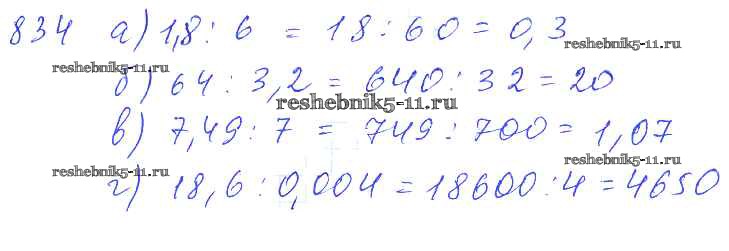 834 а) 1,8 : 6 = 18 : 60 = 0,3
reshebnik5-11.ru
reshebnik5-11.ru
б) 64 : 3,2 = 640 : 32 = 20
reshebnik5-11.ru
в) 7,49 : 7 = 749 : 700 = 1,07
reshebnik5-11.ru
reshebnik5-11.ru
г) 18,6 : 0,004 = 18600 : 4 = 4650